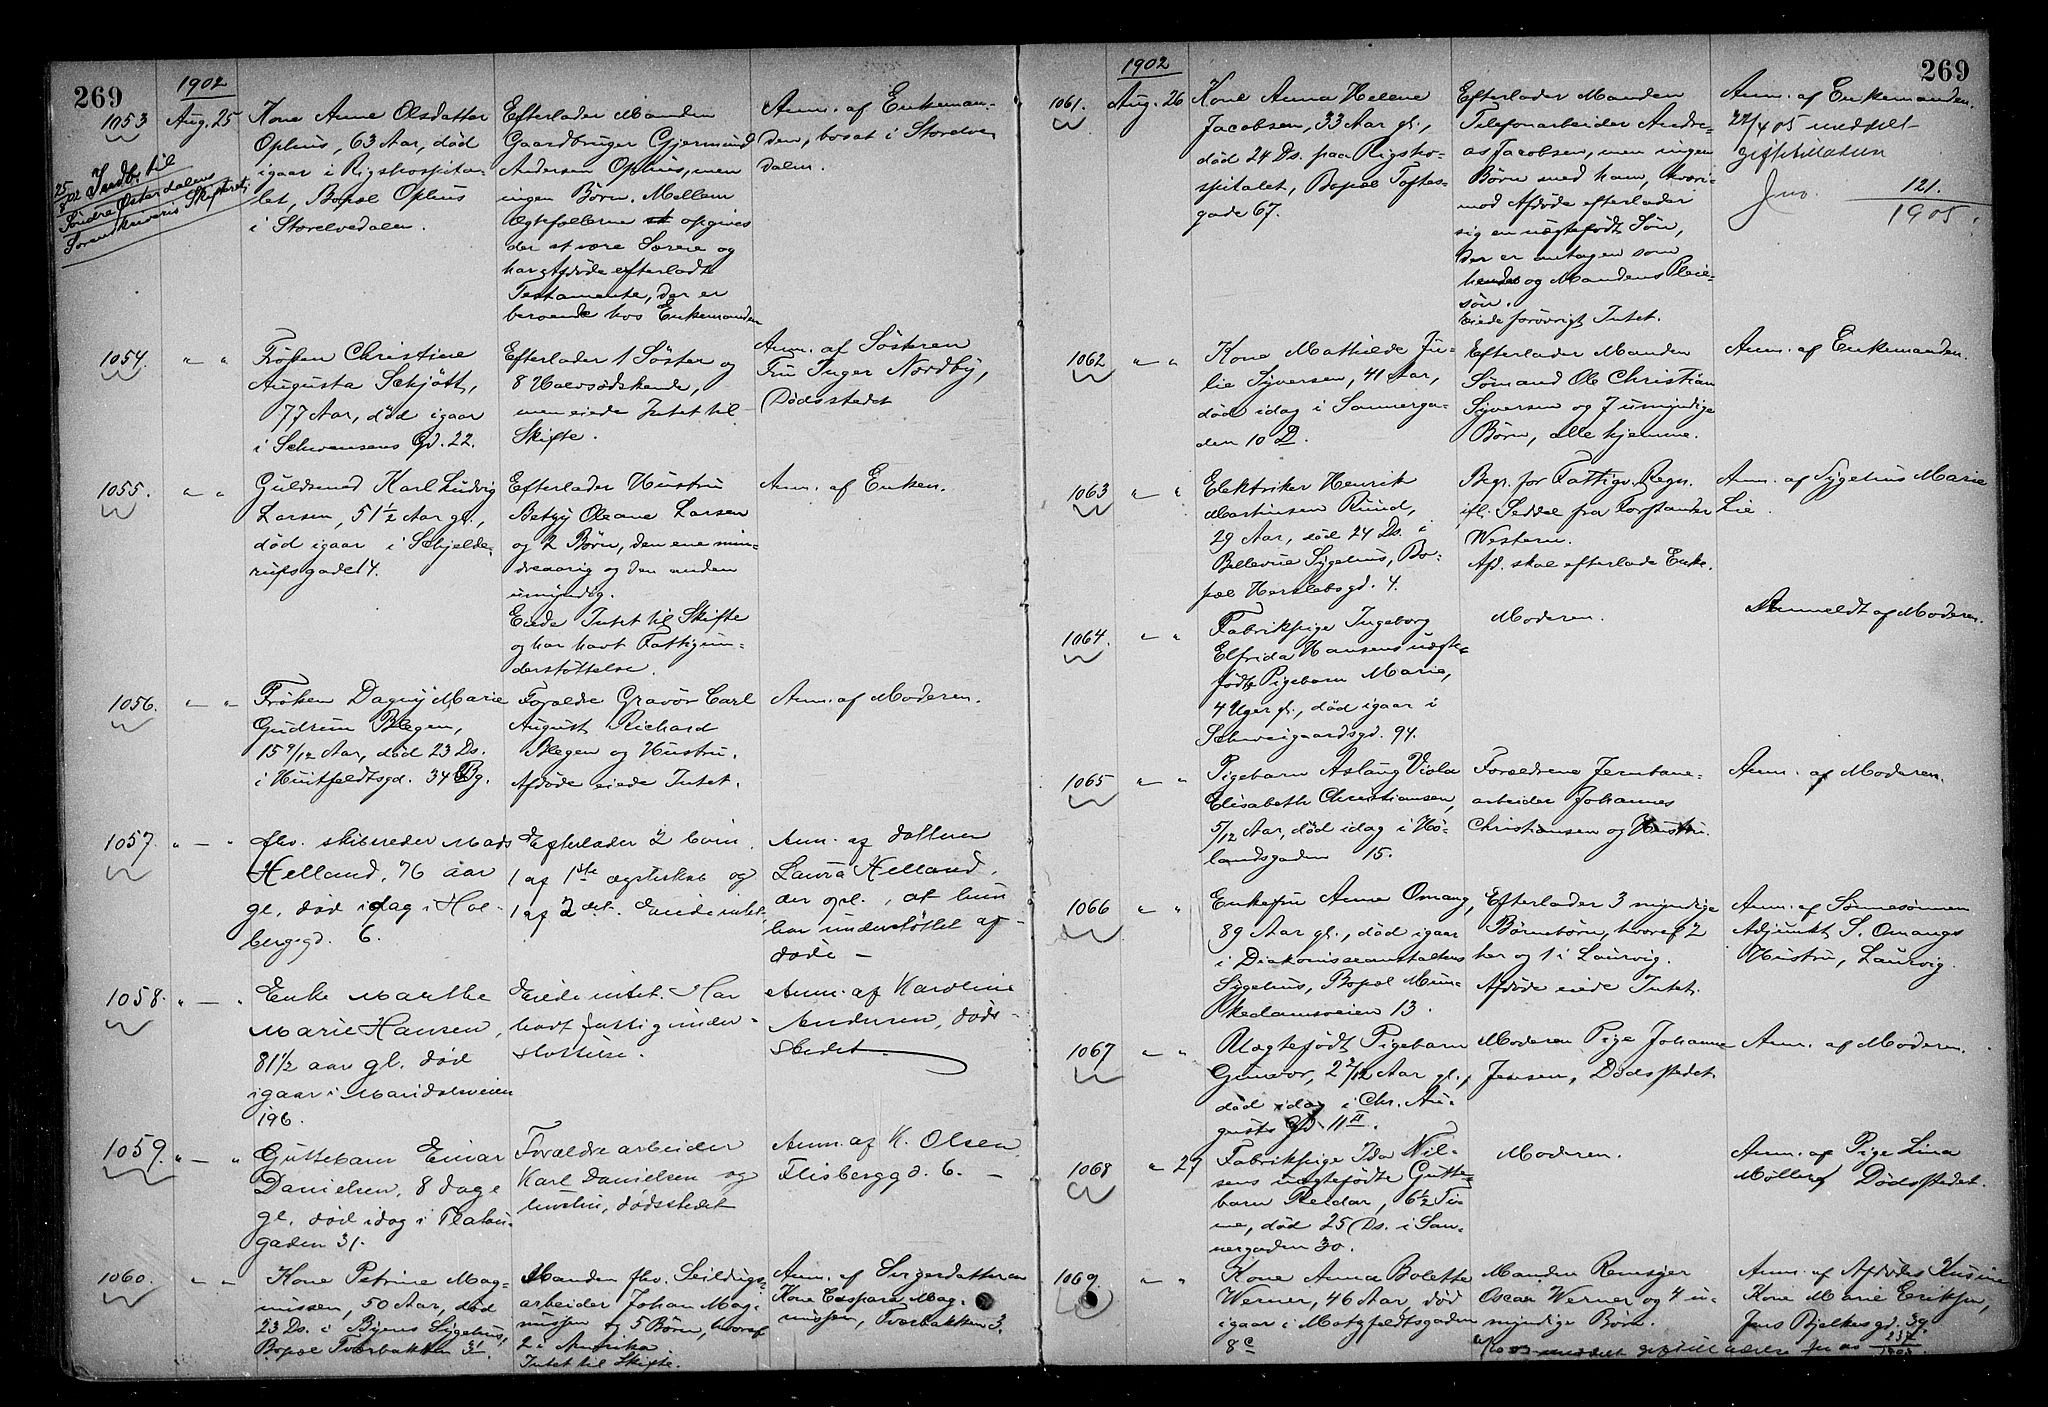 269
1902
1053
Aug. 25
Kone Anne Olsdatter
Ophus, 63 Aar, død
igaar i Rigshospita-
let, Bopæl Ophus
i Storelvedalen.
Efterlader Manden
Gaardbruger Gjermund
Andersen Ophus, men
ingen Børn. Mellem
Ægtefællerne opgives
der at være Særeie og
har Afdøde efterladt
Testamente, der er
beroende hos Enkemanden
Anm. af Enkeman-
den, bosat i Storelve-
dalen.
25/8 02 Indb. til
Søndre Østerdalens
Sorenskriveris Skifteret.
1054.
" "
Frøken Christine
Augusta Schjøtt,
77 Aar, død igaar
i Schwensens Gd. 22.
Efterlader 1 Søster og
8 Halvsødskende,
men eiede Intet til
Skifte.
Anm. af Søsteren
Fru Inger Nordby,
Dødsstedet
1055.
" "
Guldsmed Karl Ludvig
Larsen, 51 1/2 Aar gl.,
død igaar i Schjelde-
rupsgade 14.
Efterlader Hustru
Betzy Oleane Larsen
og 2 Børn, den ene min-
dreaarig og den anden
umyndig.
Eiede Intet til Skifte
og har havt Fattigun-
derstøttelse.
Anm. af Enken.
1056.
" "
Frøken Dagny Marie
Gudrun Blegen,
15 9/12 Aar, død 23 Ds.
i Huitfeldtsgd. 34 Bg.
Forældre Gravør Carl
August Richard
Blegen og Hustru.
Afdøde eiede Intet.
Anm. af Moderen.
1057.
" — "
fhv. skibsreder Mads
Helland, 76 aar
gl., død idag i Hol-
bergsgd. 6.
Efterlader 2 børn,
1 af 1ste ægteskab og
1 af 2det. Eiede intet.
Anm. af datteren
Laura Helland,
der opl., at hun
har understøttet af-
døde —
1058.
" — "
Enke Marthe
Marie Hansen,
81 1/2 aar gl. død
igaar i Maridalsveien
196.
Eiede intet. Har
havt fattigunder-
støttelse.
Anm. af Karoline
Andersen, døds-
stedet
1059.
" — "
Guttebarn Einar
Danielsen, 8 dage
gl., død idag i Platou-
gaden 31.
Forældre arbeider
Karl Danielsen og
hustru, dødsstedet
Anm. af K. Olsen
Flisberggd. 6. —
1060.
" "
Kone Petrine Mag-
nussen, 50 Aar, død
23 Ds. i Byens Sygehus,
Bopæl Tverbakken 3.
Manden fhv. Seildugs-
arbeider Johan Mag-
nussen og 5 Børn, hvoraf
2 i Amerika
Intet til Skifte.
Anm. af Svigerdatteren
Kone Caspara Mag-
nussen, Tverbakken 3.
269
1902
1061.
Aug. 26
Kone Anna Helene
Jacobsen, 33 Aar gl.,
død 24 Ds. paa Rigsho-
spitalet, Bopæl Toftes-
gade 67.
Efterlader Manden
Telefonarbeider Andre-
as Jacobsen, men ingen
Børn med ham, hvori-
mod Afdøde efterlader
sig en uægtefødt Søn,
der er antagen som
hendes og Mandens Pleie-
søn.
Eiede forøvrigt Intet.
Anm. af Enkemanden.
22/4 05 meddelt
giftetilladelse
Jno. 121.
1905.
1062
" "
Kone Mathilde Ju-
lie Syversen, 41 Aar,
død idag i Sannerga-
den 10 D.
Efterlader Manden
Sømand Ole Christian
Syversen og 7 umyndige
Børn, alle hjemme.
Anm. af Enkemanden.
1063
" "
Elektriker Henrik
Martinsen Ruud,
29 Aar, død 24 Ds. i
Bellevue Sygehus, Bo-
pæl Herslebsgd. 4.
Begr. for Fattigv. Regn.
ifl. Seddel fra Forstander
Western.
Afd. skal efterlade Enke.
Anm. af Sygehus Marie
Lie.
1064.
" "
Fabrikpige Ingeborg
Elfrida Hansens uægte-
fødte Pigebarn Marie,
4 Uger gl., død igaar i
Schweigaardsgd. 94.
Moderen.
Anmeldt af Moderen.
1065
" "
Pigebarn Aslaug Viola
Elisabeth Christiansen,
5/12 Aar, død idag i Hø-
landsgaden 15.
Forældrene Jernbane-
arbeider Johannes
Christiansen og Hustru.
Anm. af Moderen.
1066
" "
Enkefru Anne Omang,
89 Aar gl., død igaar
i Diakonisseanstaltens
Sygehus, Bopæl Mun-
kedamsveien 13.
Efterlader 3 myndige
Børnebørn, hvoraf 2
her og 1 i Laurvig.
Afdøde eiede Intet.
Anm. af Sønnesønnen
Adjunkt S. Omangs
Hustru, Laurvig.
1067
" "
Uægtefødt Pigebarn
Gunvor, 2 2/12 Aar gl.,
død idag i Chr. Au-
gusts Gd. 11 II.
Moderen Pige Johanne
Jensen, Dødsstedet.
Anm. af Moderen.
1068
" 27
Fabrikpige Ida Nil-
sens uægtefødte Gutte-
barn Reidar, 6 1/2 Ti-
me, død 25 Ds. i San-
nergaden 30.
Moderen.
Anm. af Pige Lina
Møller, Dødsstedet.
1069.
" "
Kone Anna Bolette
Werner, 46 Aar, død
igaar i Motzfeldtsgaden
8 c
Manden Remsjer
Oscar Werner og 4 u-
myndige Børn.
meddelt giftetilladelse
Anm. af Afdødes Kusine
Kone Marie Eriksen,
Jens Bjelkesgd. 39.
237